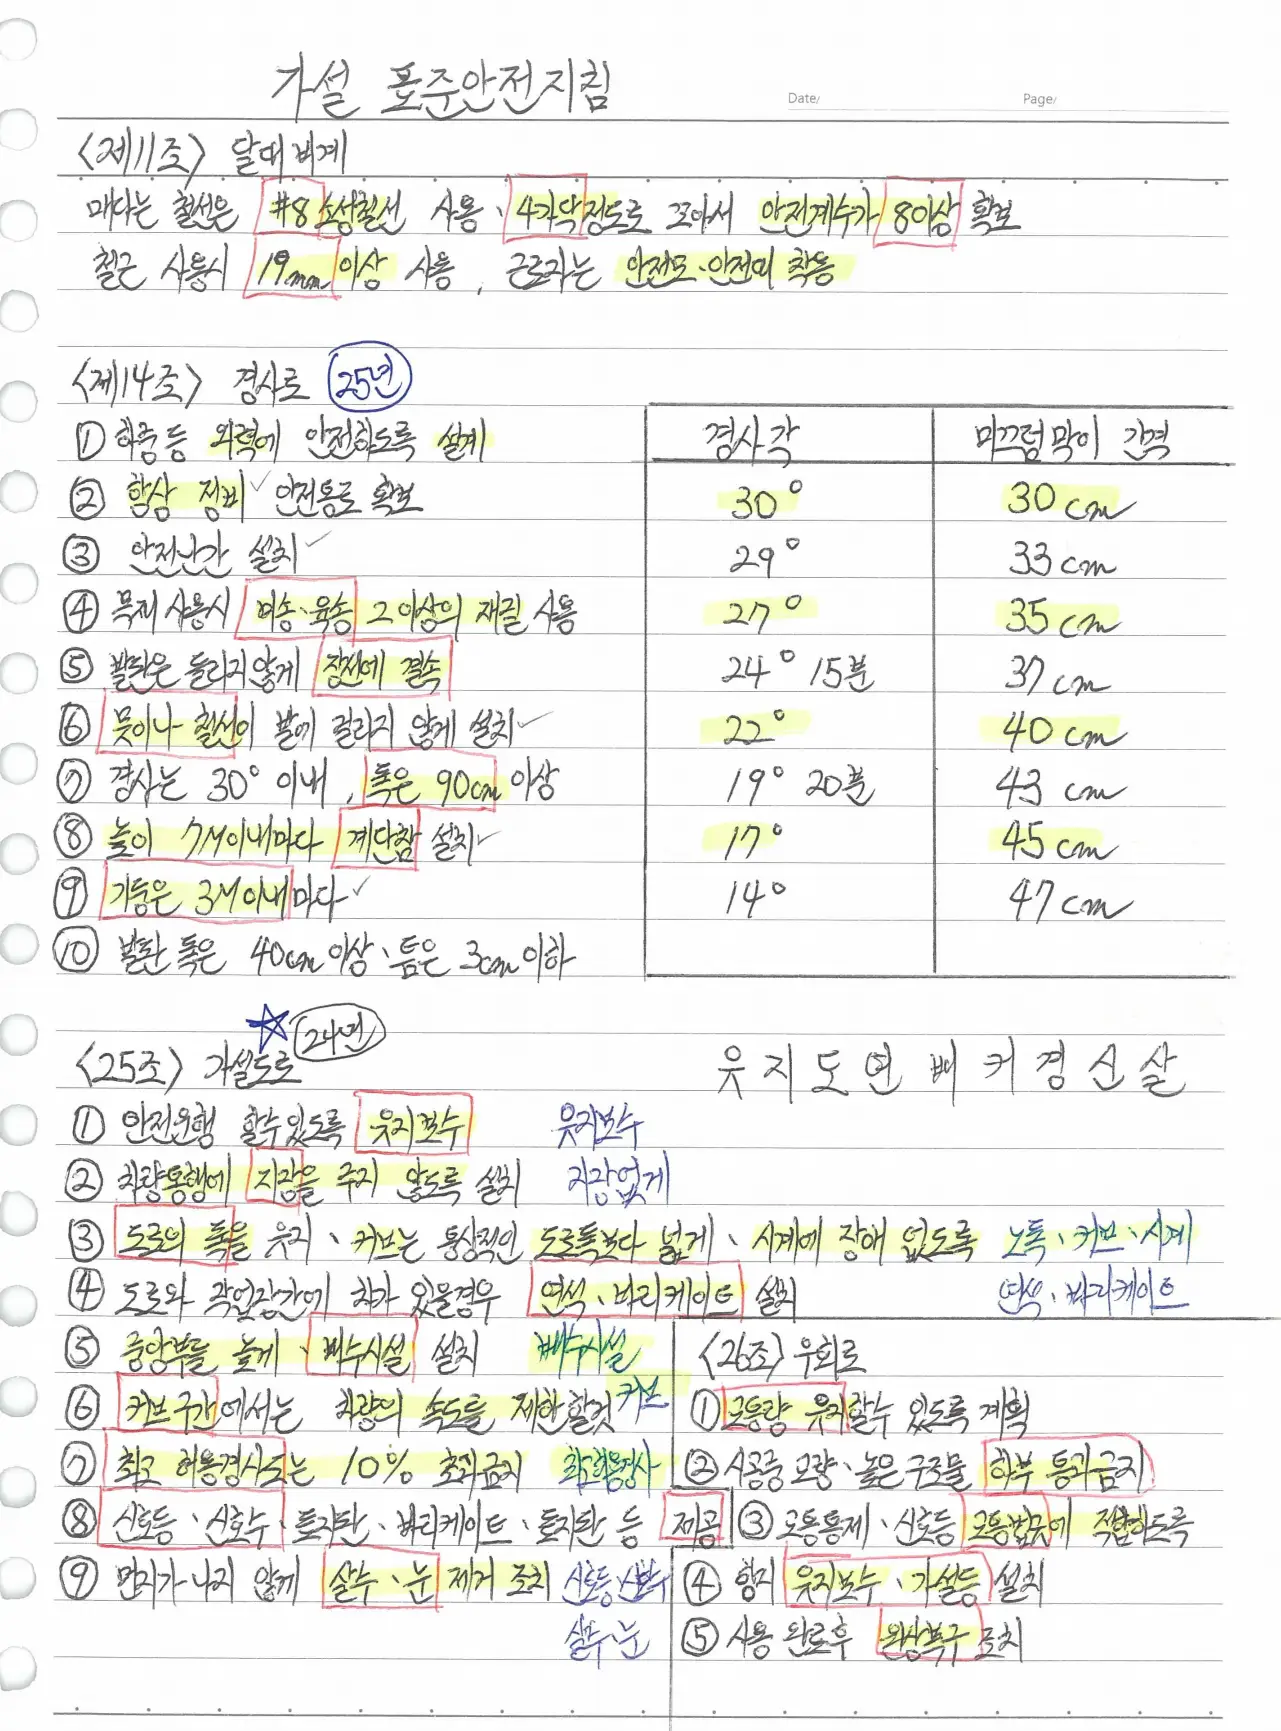 가설 표준안전지침
Date/
Page/
<제11조> 달대비계
매다는 철선은 #8 소성철선 사용、4가닥정도로 꼬아서 안전계수가 8이상 확보
철근 사용시 19mm 이상 사용, 근로자는 안전모、안전대 착용
<제14조> 경사로 25년
① 하중등 외력에 안전하도록 설계
② 항상 정비✓ 안전통로 확보
③ 안전난간 설치✓
④ 목재 사용시 미송、육송 그 이상의 재질 사용
⑤ 발판은 들리지않게 장선에 결속
⑥ 못이나 철선이 발에 걸리지 않게 설치✓
⑦ 경사는 30° 이내, 폭은 90cm 이상
⑧ 높이 7M이내마다 계단참 설치✓
⑨ 기둥은 3M이내마다✓
⑩ 발판 폭은 40cm이상、틈은 3cm이하
경사각 미끄럼막이 간격
30° 30cm
29° 33cm
27° 35cm
24° 15분 37cm
22° 40cm
19° 20분 43cm
17° 45cm
14° 47cm
<25조> 가설도로 ☆ 24년
유지도연배커경신살
① 안전운행 할수있도록 유지보수 유지보수
② 차량통행에 지장을 주지 않도록 설치 지장없게
③ 도로의 폭을 유지、커브는 통상적인 도로폭보다 넓게、시계에 장애 없도록 노폭、커브、시계
④ 도로와 작업장간에 차가 있을경우 연석、바리케이트 설치 연석、바리케이트
⑤ 중앙부를 높게、배수시설 설치 배수시설
⑥ 커브구간에서는 차량의 속도를 제한할것 커브
⑦ 최고 허용경사도는 10% 초과금지 최고허용경사
⑧ 신호등、신호수、표지판、바리케이트、표지판 등 제공
⑨ 먼지가 나지 않게 살수、눈 제거 조치 신호등、신호수
살수、눈
<26조> 우회로
① 교통량 유지할수 있도록 계획
② 시공중 교량、높은구조물 하부 통과금지
③ 교통통제、신호등 교통법규에 적합하도록
④ 항시 유지보수、가설등 설치
⑤ 사용 완료후 원상복구 조치